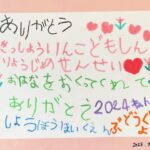 ありがとう
きっしょうりんこどもしん
りょうじょのせんせい
おはなをおくってくれて
ありがとう
2024ねん
しょうぼうほいくえん
ぶどうぐみ